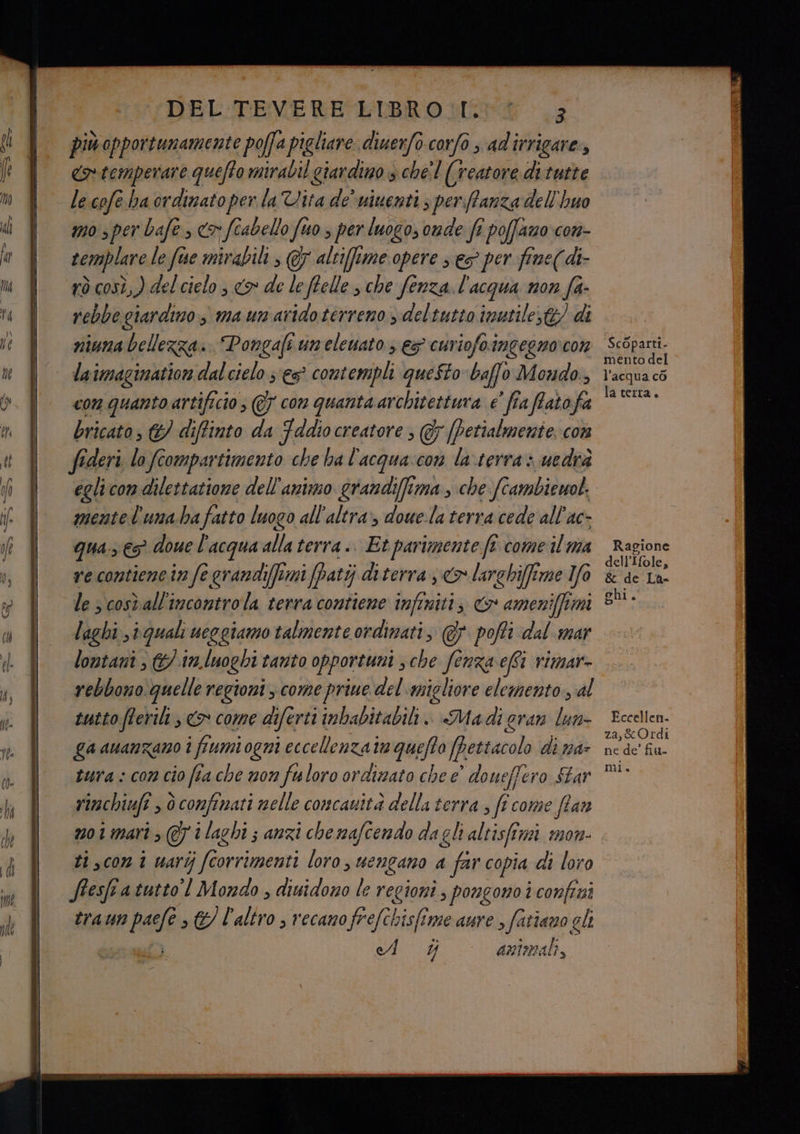 DEL TEVERE LIBRO I. 3
più opportunamente possa pigliare diuerso corso, ad irrigare,
& temperare questo mirabil giardino; che'l Creatore di tutte
le cose ha ordinato per la Vita de' uiuenti; per stanza dell'huo
mo; per base, & scabello suo; per luogo, onde si possano con-
templare le sue mirabili, & altissime opere; & per fine (di-
rò così,) del cielo, & de le stelle, che senza l'acqua non sa-
rebbe giardino, ma un arido terreno, del tutto inutile, & di
niuna bellezza. Pongasi un eleuato, & curioso ingegno con
la imagination dal cielo, & contempli questo basso Mondo,
con quanto artificio, & con quanta architettura e' sia stato fa
bricato, & distinto da Iddio creatore, & spetialmente con
sideri lo scompartimento che ha l'acqua con la terra: uedrà
egli con dilettatione dell'animo grandissima, che scambieuol-
mente l'una ha fatto luogo all'altra, doue la terra cede all'ac-
qua, & doue l'acqua alla terra. Et parimente si come il ma
re contiene in se grandissimi spatij di terra, & larghissime Iso
le, così all'incontro la terra contiene infiniti, & amenissimi
laghi, i quali ueggiamo talmente ordinati, & posti dal mar
lontani, & in luoghi tanto opportuni, che senza essi rimar-
rebbono quelle regioni, come priue del migliore elemento, al
tutto sterili, & come diserti inhabitabili. Ma di gran lun-
ga auanzano i fiumi ogni eccellenza in questo spettacolo di na-
tura: con cio sia che non fu loro ordinato che e' douessero star
rinchiusi, ò confinati nelle concauità della terra, si come stan
no i mari, & i laghi; anzi che nascendo da gli altissimi mon-
ti, con i uarij scorrimenti loro, uengano a far copia di loro
stessi a tutto'l Mondo, diuidono le regioni, pongono i confini
tra un paese, & l'altro, recano freschissime aure, satiano gli
A ij animali,
Scóparti-
mento del
l'acqua có
la terra.
Ragione
dell'Isole,
& de La-
ghi.
Eccellen-
za, & Ordi
ne de' fiu-
mi.